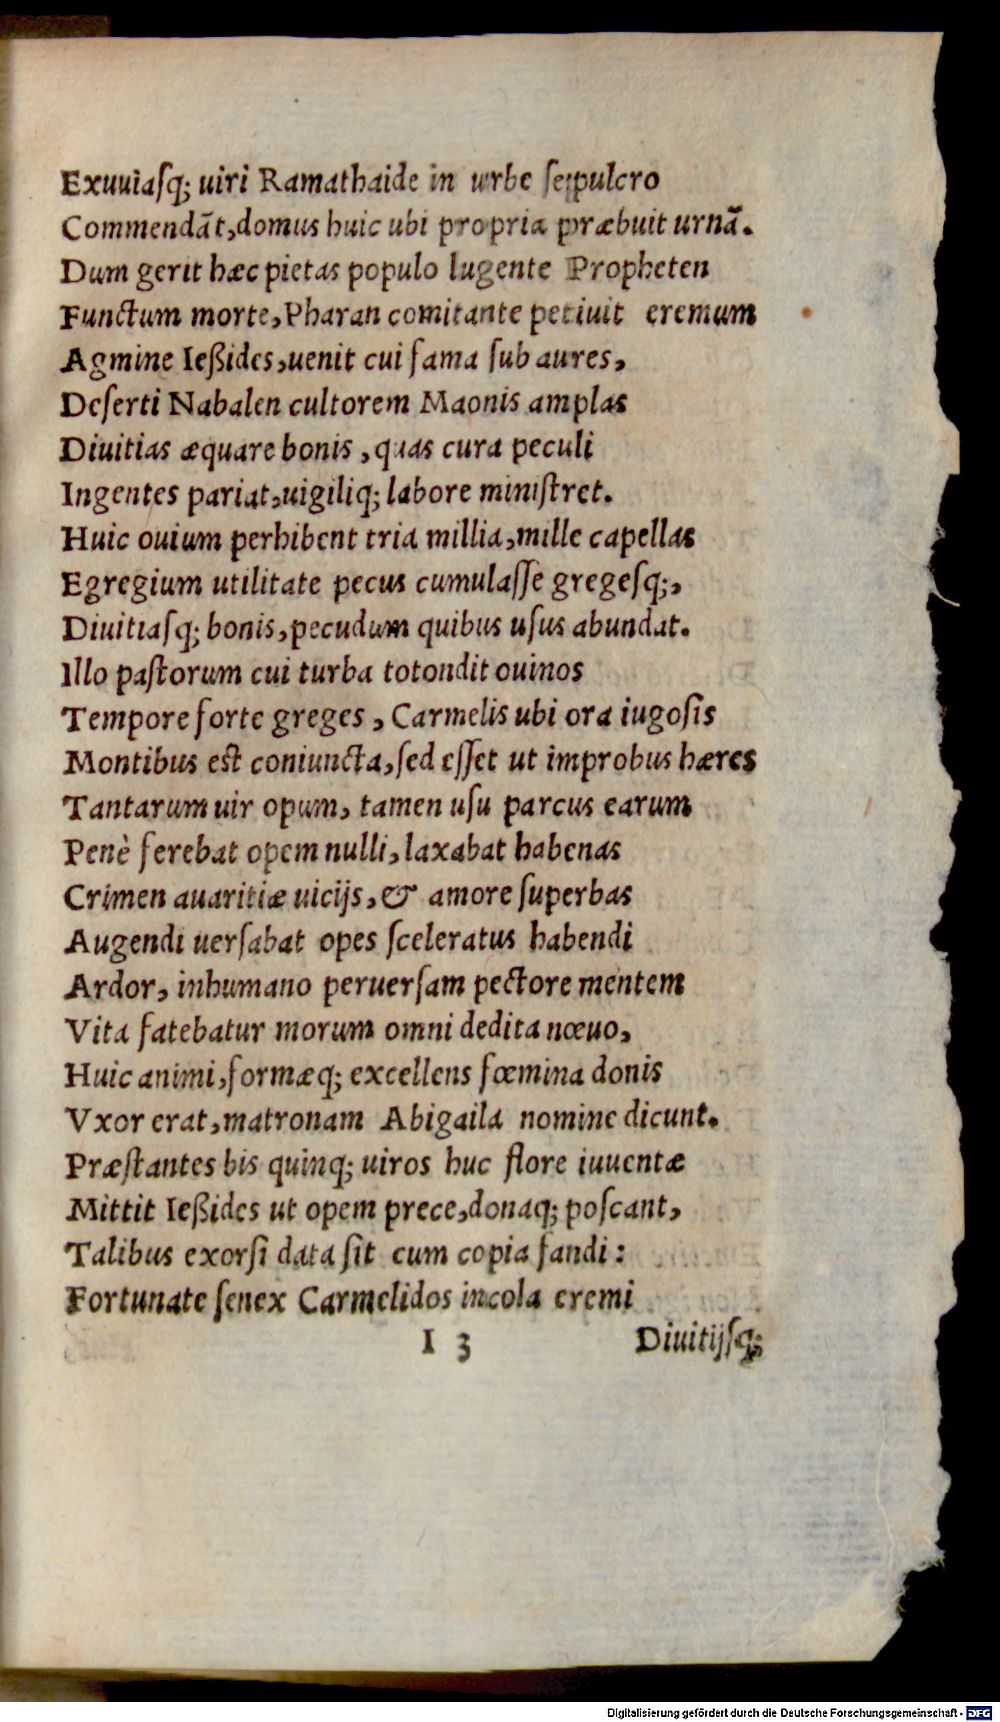 Exuuiasq́; uiri Ramathaide in urbe sepulcro
Commendãt, domus huic ubi propria præbuit urnã.
Dum gerit hæc pietas populo lugente Propheten
Functum morte, Pharan comitante petiuit eremum
Agmine Ießides, uenit cui fama sub aures,
Deserti Nabalen cultorem Maonis amplas
Diuitias æquare bonis, quas cura peculi
Ingentes pariat, uigiliq́; labore miniſtret.
Huic ouium perhibent tria millia, mille capellas
Egregium utilitate pecus cumulaſſe gregeſq́;,
Diuitiaſq́; bonis, pecudum quibus uſus abundat.
Illo paſtorum cui turba totondit ouinos
Tempore forte greges, Carmelis ubi ora iugoſis
Montibus est coniuncta, ſed eſſet ut improbus hæres
Tantarum uir opum, tamen uſu parcus earum
Penè ferebat opem nulli, laxabat habenas
Crimen auaritiæ uicijs, & amore ſuperbas
Augendi uerſabat opes ſceleratus habendi
Ardor, inhumano peruerſam pectore mentem
Vita fatebatur morum omni dedita nœuo,
Huic animi, formæq́; excellens fœmina donis
Vxor erat, matronam Abigaila nomine dicunt.
Præſtantes bis quinq́; uiros huc flore iuuentæ
Mittit Ießides ut opem prece, donaq́; poſcant,
Talibus exorſi data ſit cum copia fandi:
Fortunate ſenex Carmelidos incola eremi
I 3 Diuitijſq́;
Digitalisierung gefördert durch die Deutsche Forschungsgemeinschaft - DFG